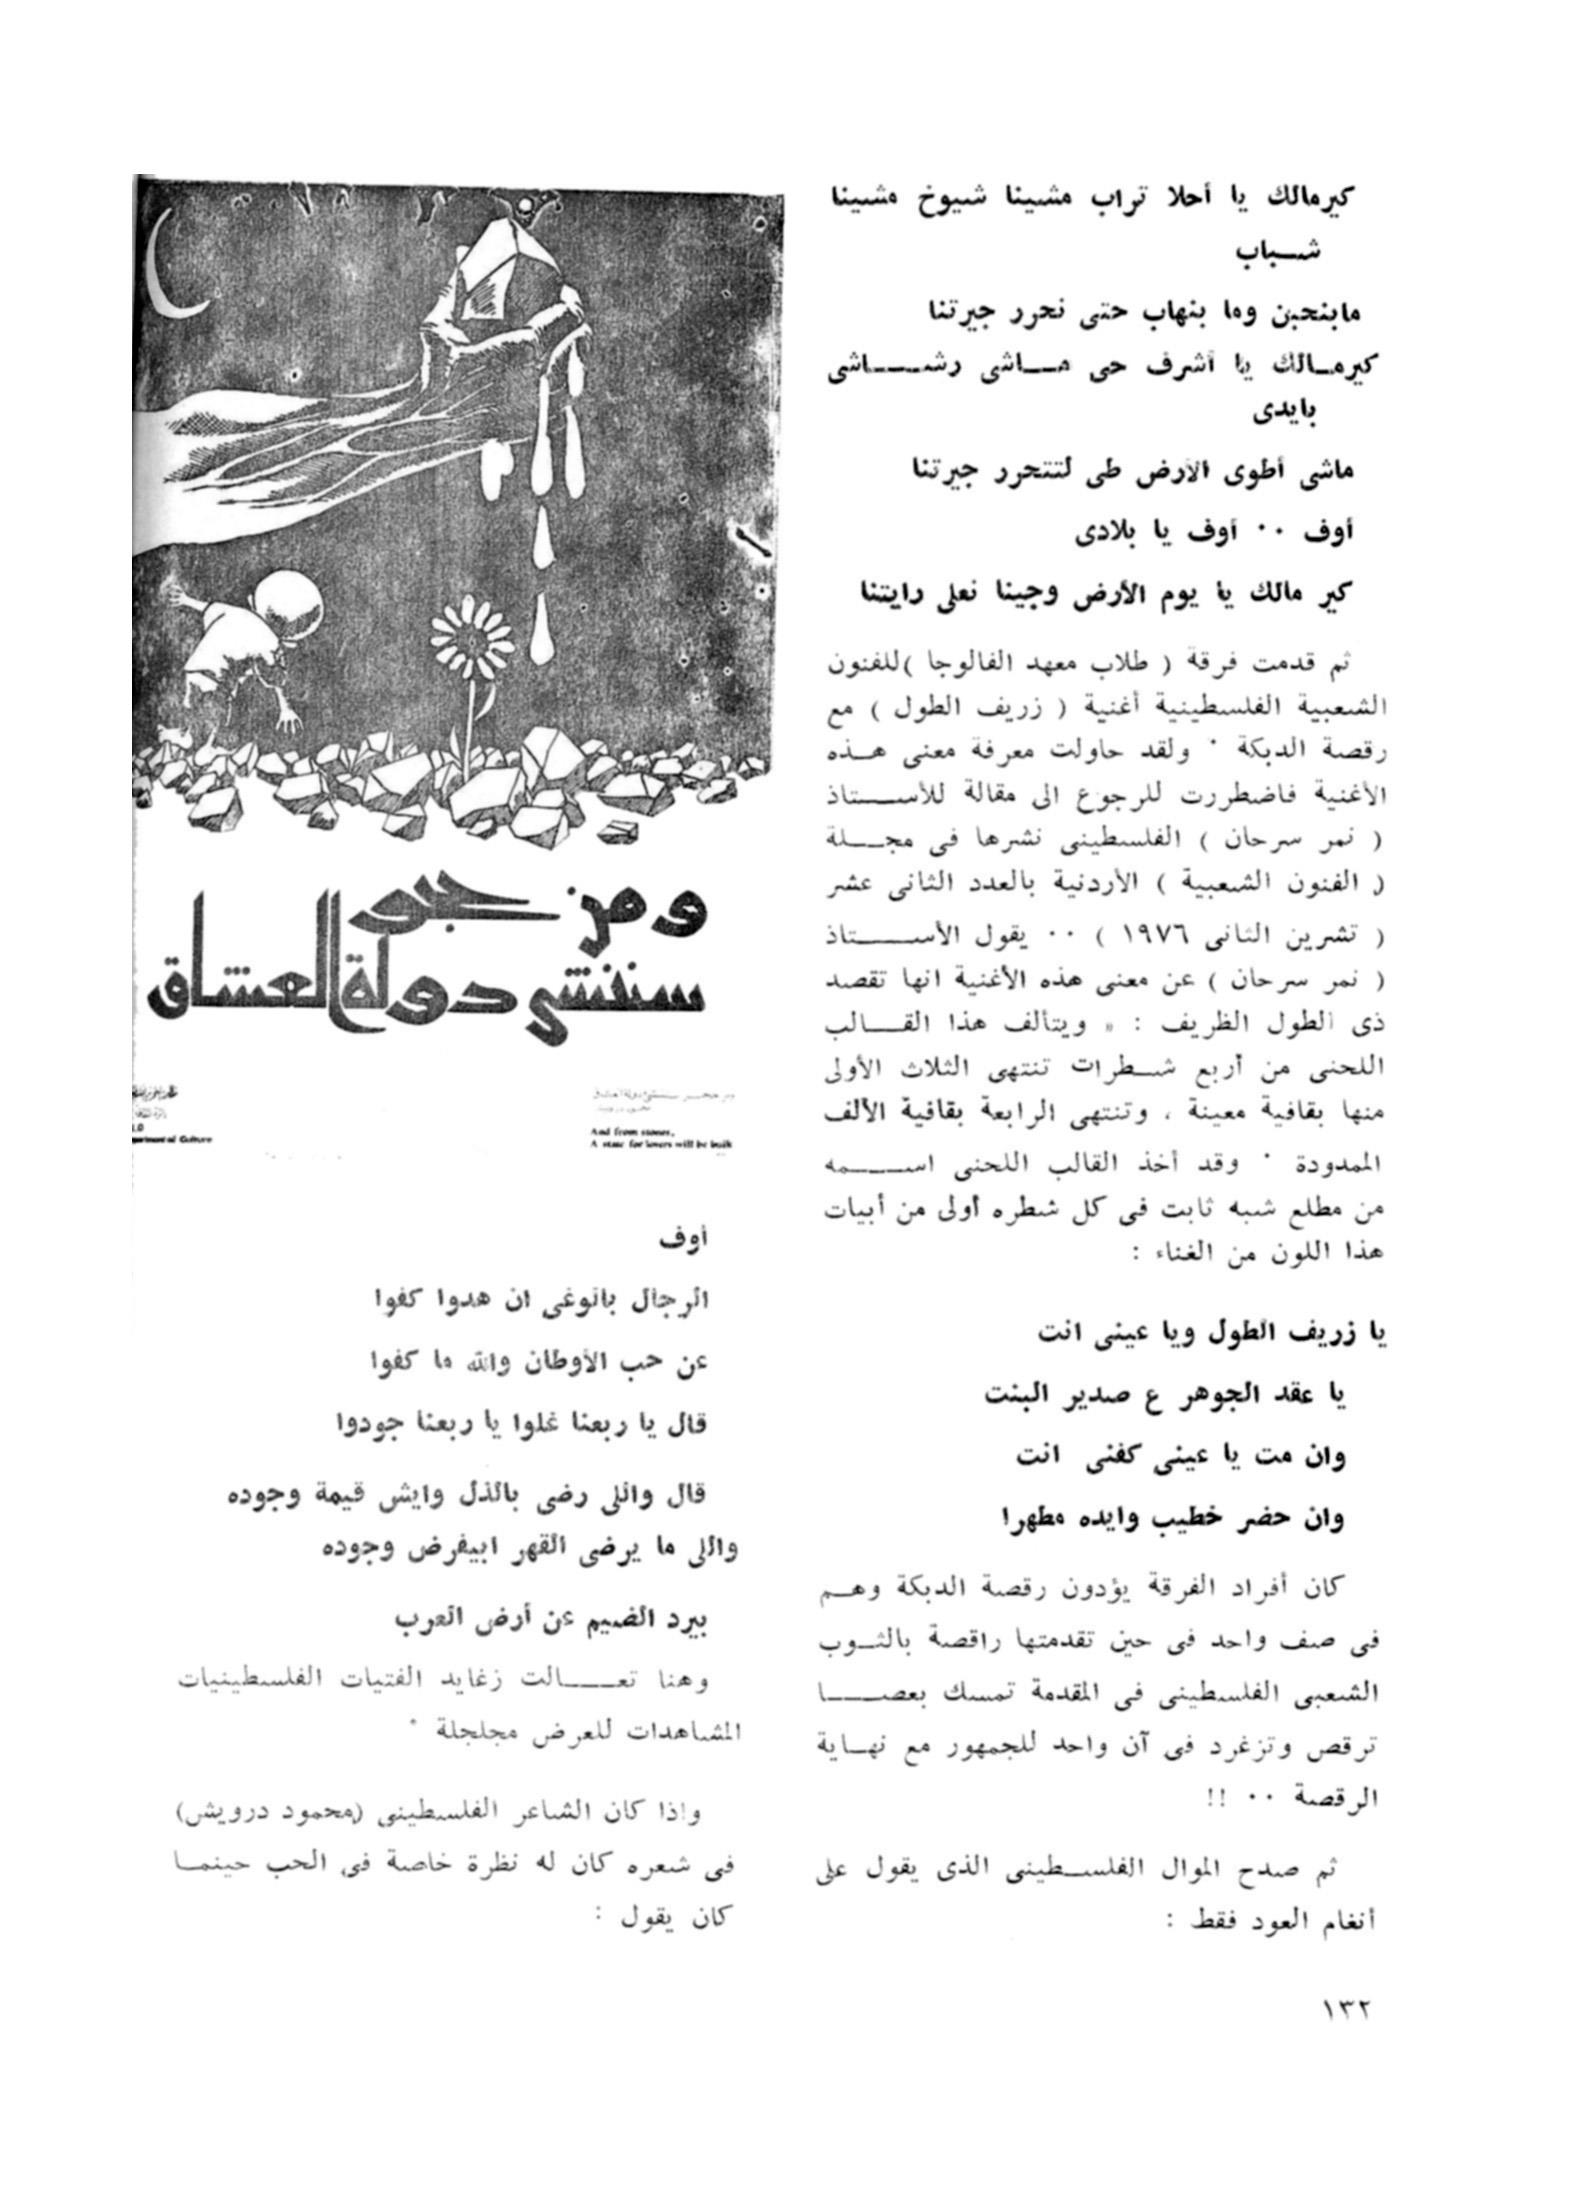 كيرمالك يا أحلا تراب مشينا شيوخ مشينا
شباب
مابنحبن وما بنهاب حتى نحرر جيرتنا
كيرمالك يا أشرف حى ماشى رشاشى
بايدى
ماشى أطوى الأرض طى لتتحرر جيرتنا
أوف ٠٠ أوف يا بلادى
كير مالك يا يوم الأرض وجينا نعلى رايتنا
ثم قدمت فرقة ( طلاب معهد الفالوجا )للفنون
الشعبية الفلسطينية أغنية ( زريف الطول ) مع
رقصة الدبكة ٠ ولقد حاولت معرفة معنى هذه
الأغنية فاضطررت للرجوع الى مقالة للأستاذ
( نمر سرحان ) الفلسطينى نشرها فى مجلة
( الفنون الشعبية ) الأردنية بالعدد الثانى عشر
( تشرين الثانى ١٩٧٦ ) ٠٠ يقول الأستاذ
( نمر سرحان ) عن معنى هذه الأغنية انها تقصد
ذى الطول الظريف : « ويتألف هذا القالب
اللحنى من أربع شطرات تنتهى الثلاث الأولى
منها بقافية معينة ، وتنتهى الرابعة بقافية الألف
الممدودة ٠ وقد أخذ القالب اللحنى اسمه
من مطلع شبه ثابت فى كل شطره أولى من أبيات
هذا اللون من الغناء :
يا زريف الطول ويا عينى انت
يا عقد الجوهر ع صدير البنت
وان مت يا عينى كفنى انت
وان حضر خطيب وايده مطهرا
كان أفراد الفرقة يؤدون رقصة الدبكة وهم
فى صف واحد فى حين تقدمتها راقصة بالثوب
الشعبى الفلسطينى فى المقدمة تمسك بعصا
ترقص وتزغرد فى آن واحد للجمهور مع نهاية
الرقصة ٠٠ !!
ثم صدح الموال الفلسطينى الذى يقول على
أنغام العود فقط :
ومن حجر
سننشئ دولة العشاق
And from stones,
A state for lovers will be built
أوف
الرجال بالوغى ان هدوا كفوا
عن حب الأوطان والله ما كفوا
قال يا ربعنا غلوا يا ربعنا جودوا
قال واللى رضى بالذل وايش قيمة وجوده
واللى ما يرضى القهر ابيفرض وجوده
بيرد الضيم عن أرض العرب
وهنا تعالت زغايد الفتيات الفلسطينيات
المشاهدات للعرض مجلجلة ٠
واذا كان الشاعر الفلسطينى (محمود درويش)
فى شعره كان له نظرة خاصة فى الحب حينما
كان يقول :
١٣٢